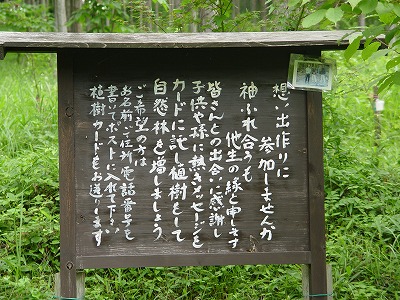 想い出作りに
参加しませんか
袖ふれ合うも
他生の縁と申します
皆さんとの出会に感謝し
子供や孫に熱きメッセージを
カードに託し植樹をして
自然林を増しましょう
ご希望の方は
お名前ご住所電話番号も
書いてポストに入れて下さい
植樹カードもお送りします